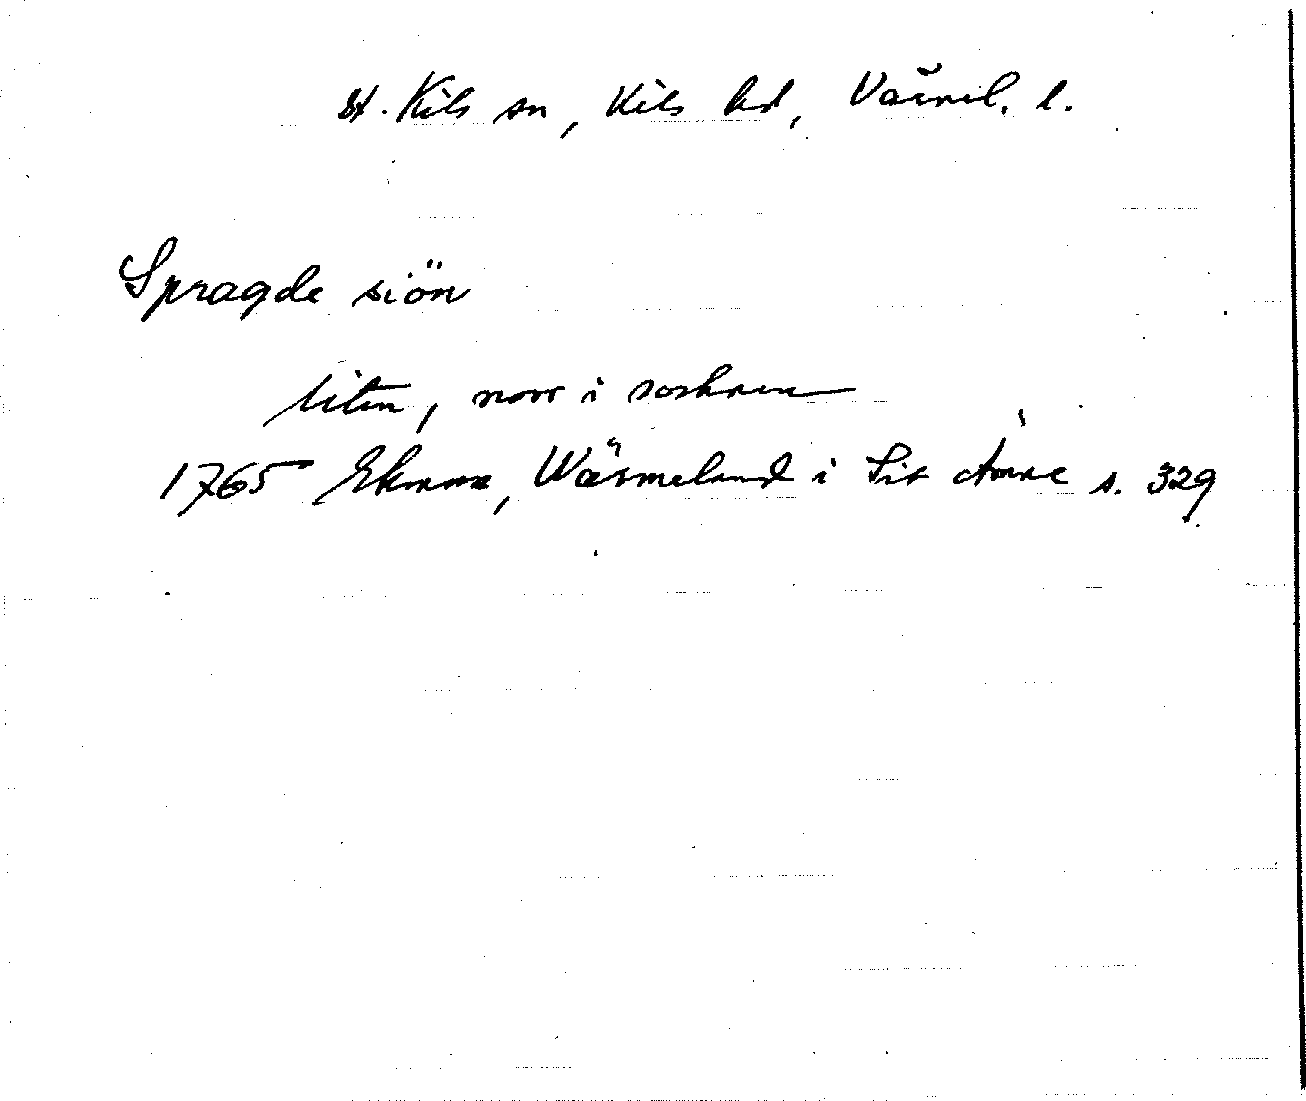 St. Kils sn, Kils hd, Värml. l.
Spragde siön
liten, norr i socknen
1765 Ekman, Wärmeland i Sit ämne s. 329